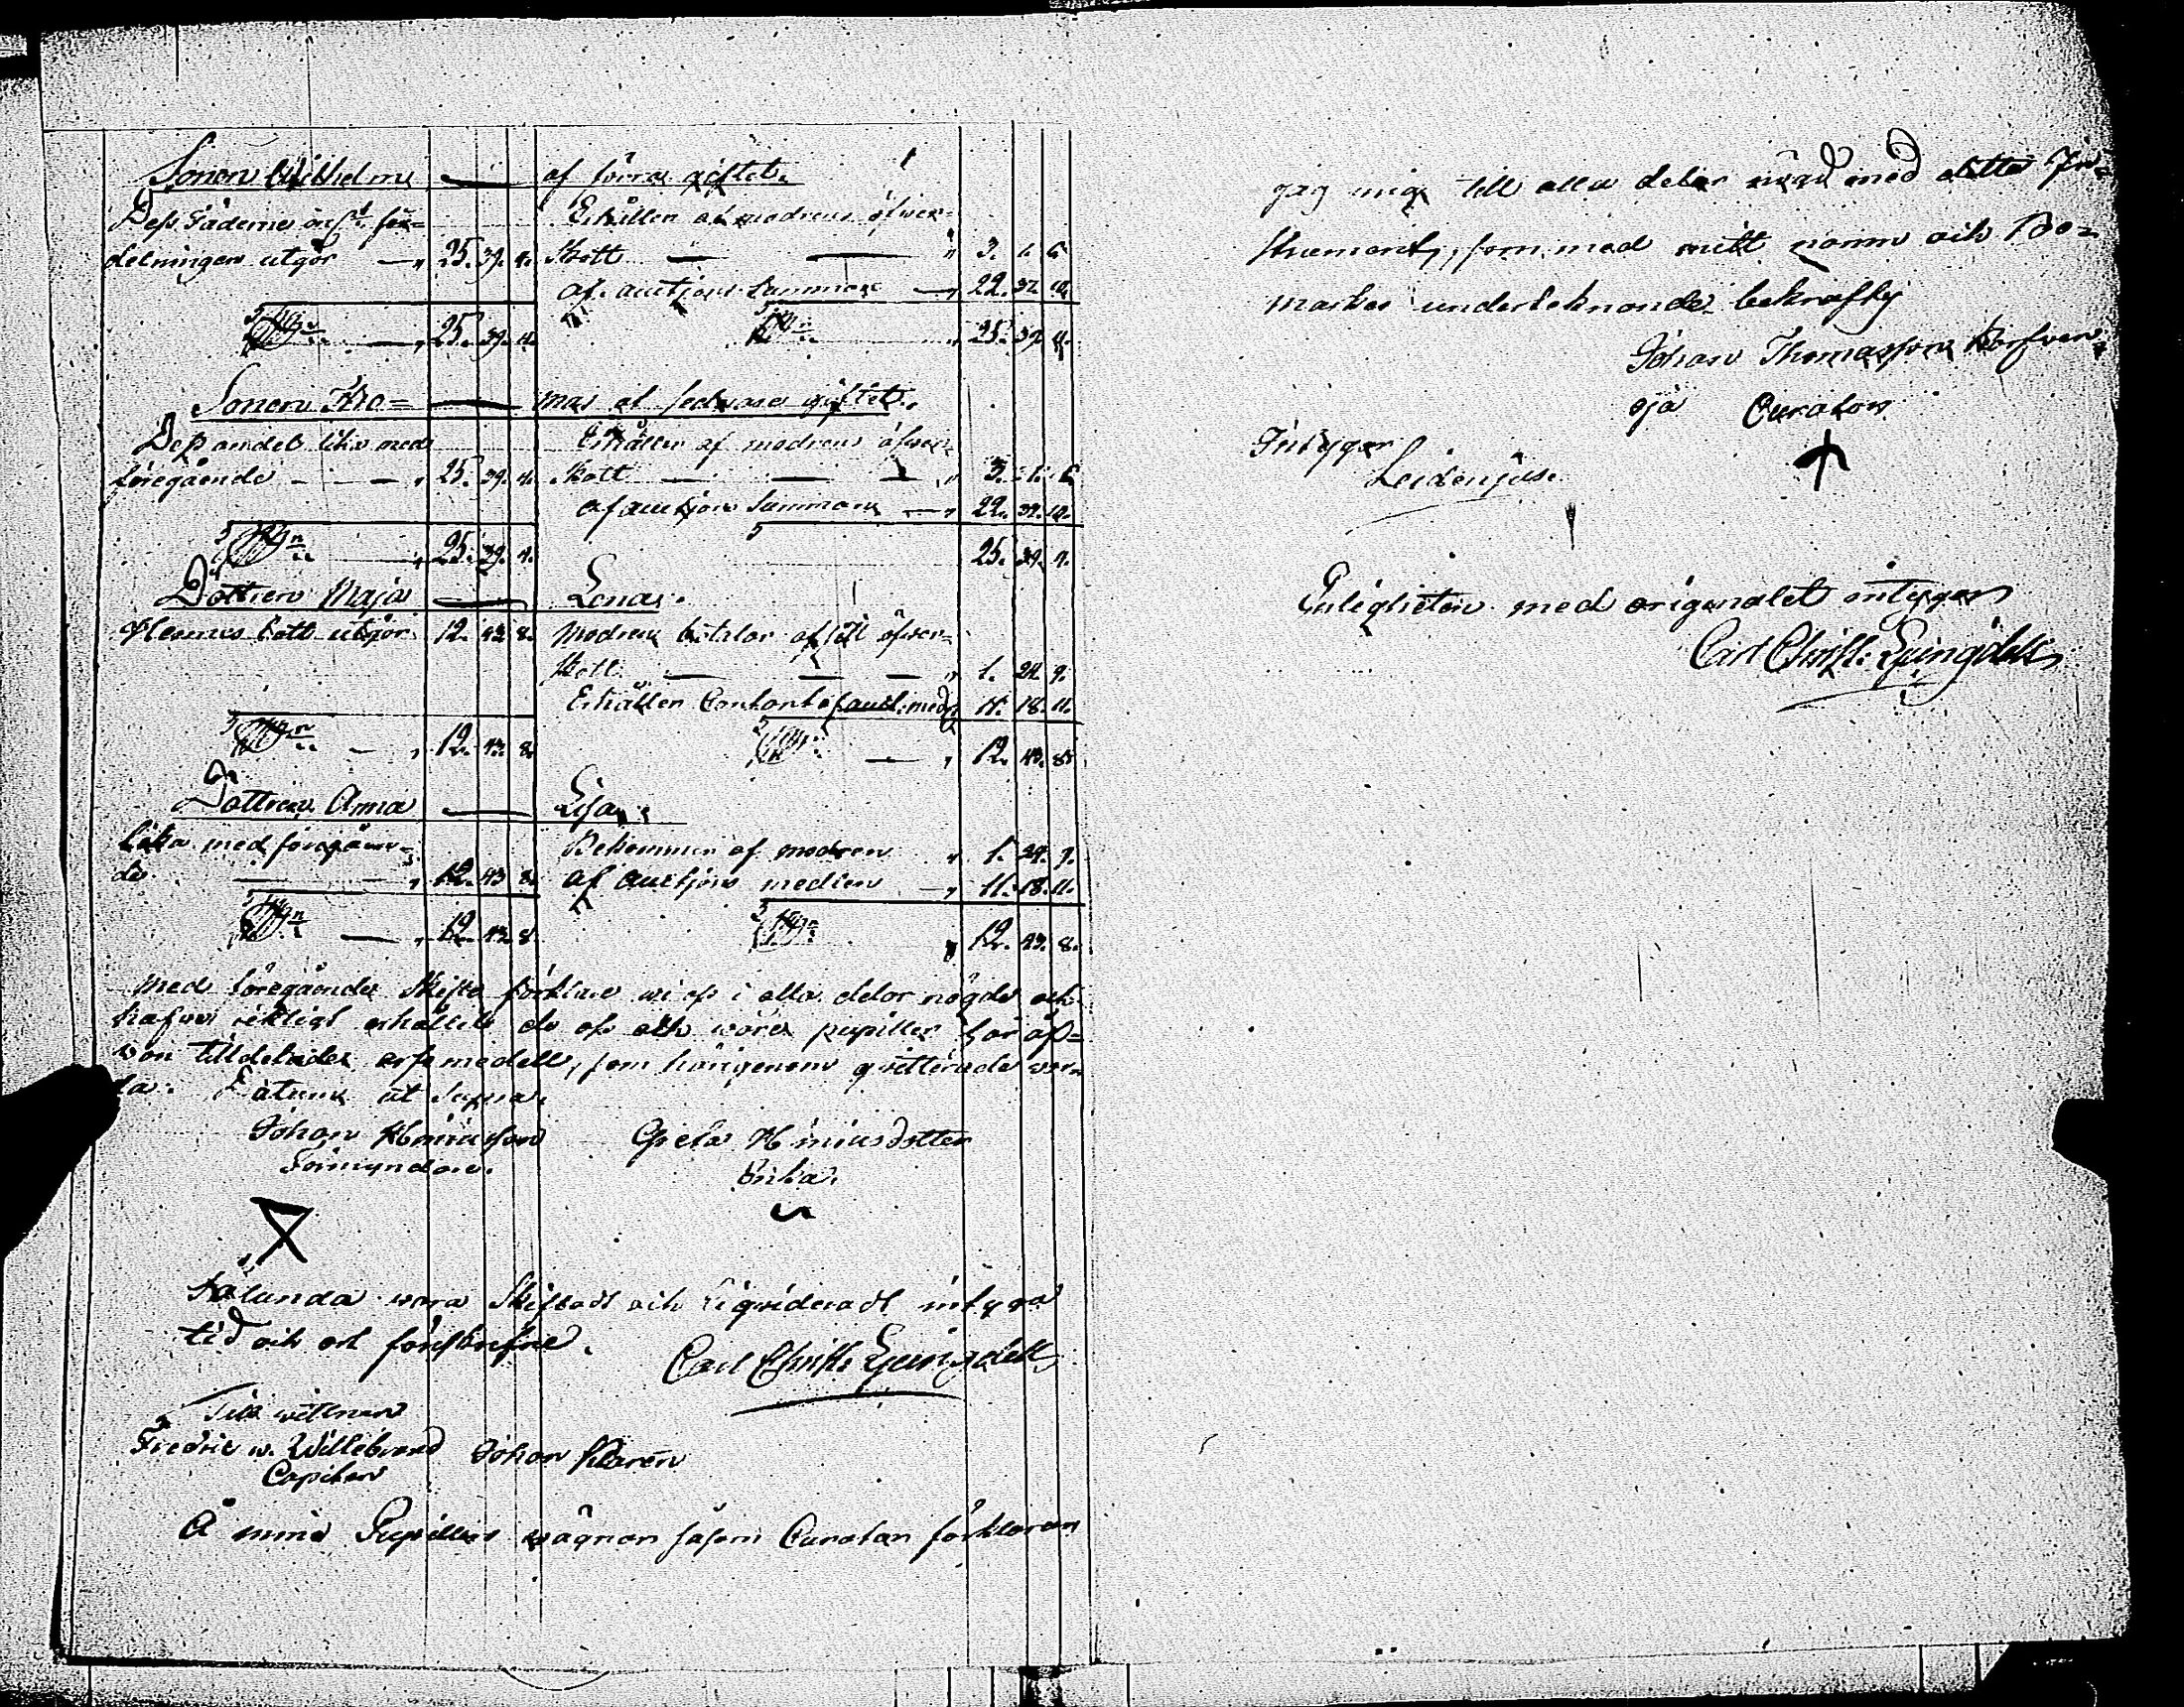 Sonen Wilhelms — af förra giftet.
Dess Fäderne arf för=
delningen utgör — " 25. 39. 4.
Erhåller af modrens öfver=
skott — — " 3. 1. 6.
af auctions Summan — " 22. 37. 10.
Rdr — " 25. 39. 4.
Rdr " 25. 39. 4.
Sonen Tho= — mas af sednare giftet.
Dess andel lika med
föregående — — — " 25. 39. 4.
Erhåller af modrens öfver=
skott — — — " 3. 1. 6.
af auctions Summan — " 22. 37. 10.
Rdr — " 25. 39. 4.
25. 39. 4.
Dottren Maja — Lena.
Hennes lott utgör 12. 43. 8.
Modren betalar af sitt öfver=
skott — — — " 1. 24. 9.
Erhåller Contant af auct: med: 11. 18. 11.
Rdr — " 12. 43. 8.
Rdr — " 12. 43. 8.
Dottren Anna — Lisa.
Lika med föregåen=
de — — " 12. 43. 8.
Bekommer af modren " 1. 24. 9.
af auctions medlen — " 11. 18. 11.
Rdr — " 12. 43. 8.
Rdr " 12. 43. 8.
Med föregående Skifte förklare wi oss i alla delar nögde och
hafwe riktigt erhållit de oss och wåra pupiller här of=
wan tilldelade arfsmedell, som härigenom qvitterade war=
da. Datum ut Supra.
Johan Henriksson
Förmyndare.
Greta Hinrichsdotter
Enka.
Sålunda vara Skiftadt och Liqvideradt intygar
tid och ort förskrefne.
Carl Christ: Ljungdell
Till wittnen
Fredric w. Willebrand
Capiten
Johan Klarén
Å mine Pupillers wägnar såsom Curator förklarar
jag mig till alla delar nögd med detta In=
strument, som med mitt namn och Bo=
märkes undertecknande bekräftes
Johan Thomasson
Curator
Intygar
Enligheten med originalet intygar
Carl Christ: Ljungdell